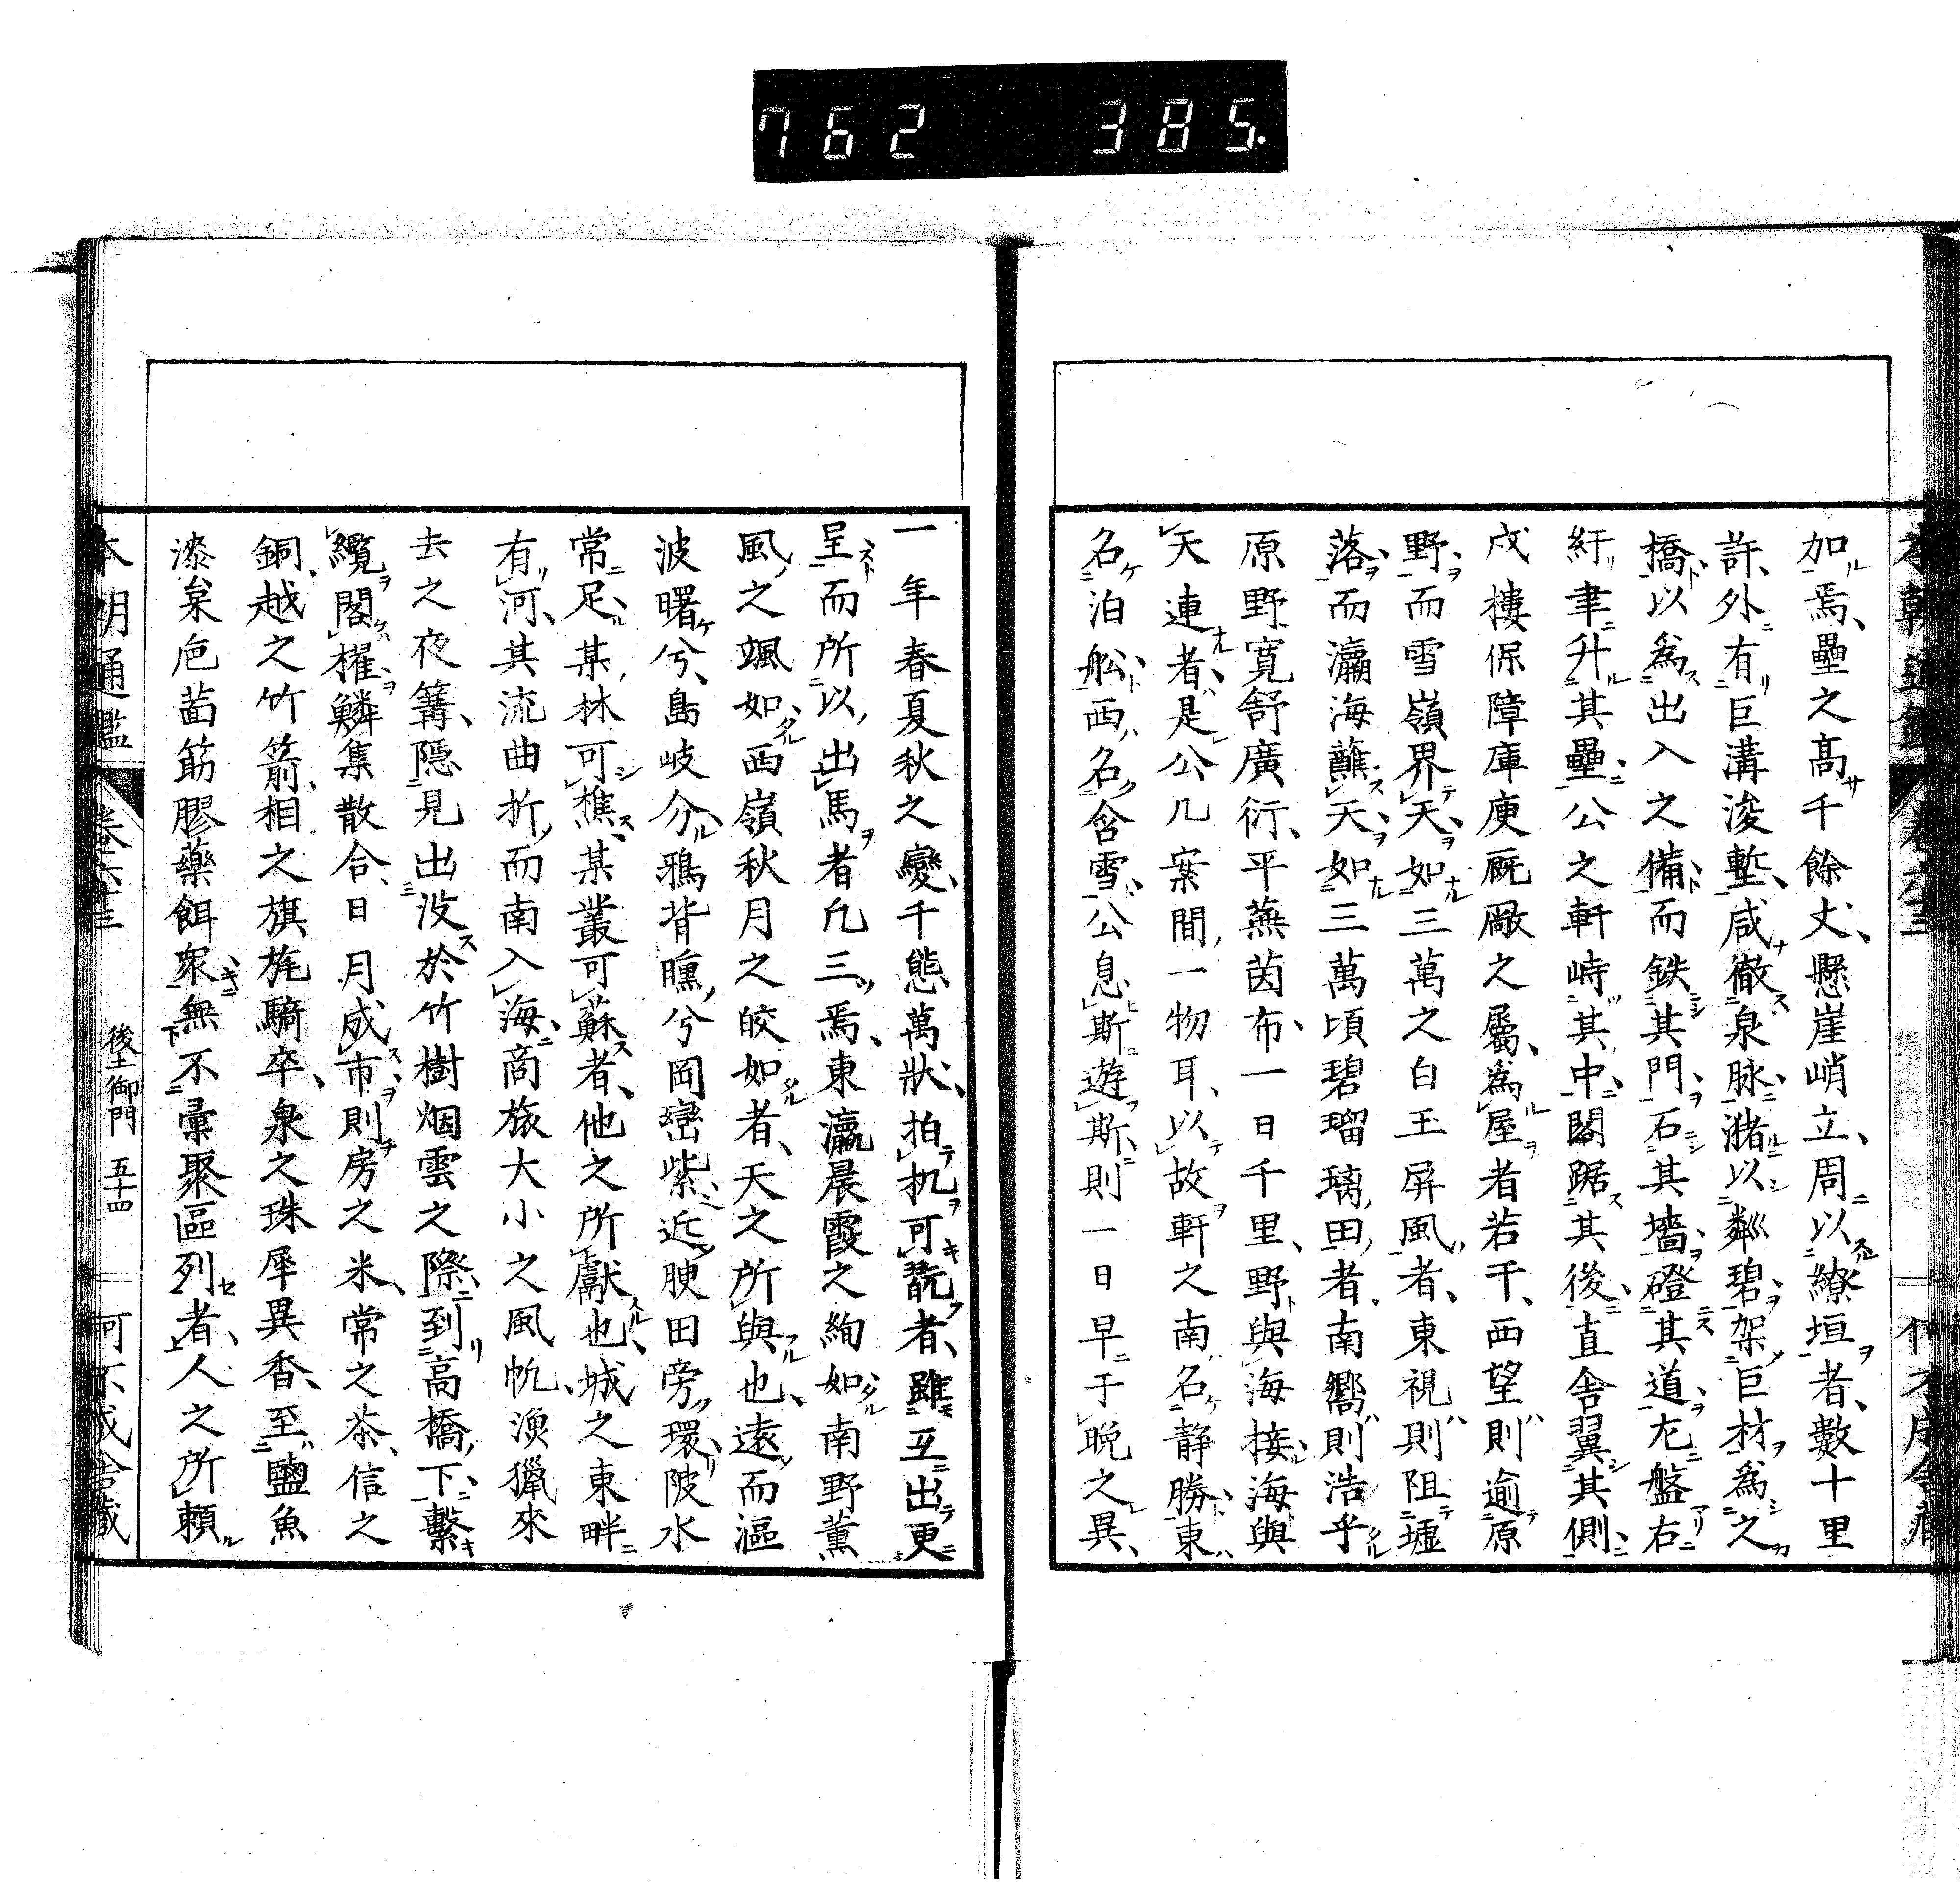 762 385.
加焉、壘之高千餘丈、懸崖峭立、周以繚垣者、數十里
許、外有巨溝浚塹、咸徹泉脉、瀦以粼碧、架巨材為之
橋、以為出入之備、而鉄其門、石其墻、磴其道、左盤右
紆、聿升其壘、公之軒峙其中、閣踞其後、直舎翼其側、
戍樓保障庫庾厩廠之屬、為屋者若干、西望則逾原
野、而雪嶺界天、如三萬之白玉屏風者、東視則阻墟
落、而瀛海蘸天、如三萬頃碧瑠璃田者、南嚮則浩乎
原野寛舒廣衍、平蕪茵布、一日千里、野與海接、海與
天連者、是公几案間、一物耳、以故軒之南名静勝、東
名泊舩、西名含雪、公息斯遊斯、則一日早于晩之異、
一年春夏秋之變、千態萬狀、拍扤可翫者、雖互出更
呈、而所以出馬者凢三焉、東瀛晨霞之絢如、南野薫
風之颯如、西嶺秋月之皎如者、天之所與也、遠而漚
波曙兮、島岐分、鴉背曛兮岡巒紫、近腴田旁環陂水
常足、某林可樵、某叢可蘇者、他之所獻也、城之東畔
有河、其流曲折、而南入海、商旅大小之風帆、漁獵來
去之夜篝、隠見出没於竹樹烟雲之際、到高橋下、繋
纜閣櫂、鱗集散合、日月成市、則房之米、常之茶、信之
銅、越之竹箭、相之旗旄騎卒、泉之珠犀異香、至鹽魚
漆枲巵茜筋膠藥餌衆、無不彙聚區列者、人之所頼
本朝通鑑 卷六十三 後土御門 五十四 何不成舎藏